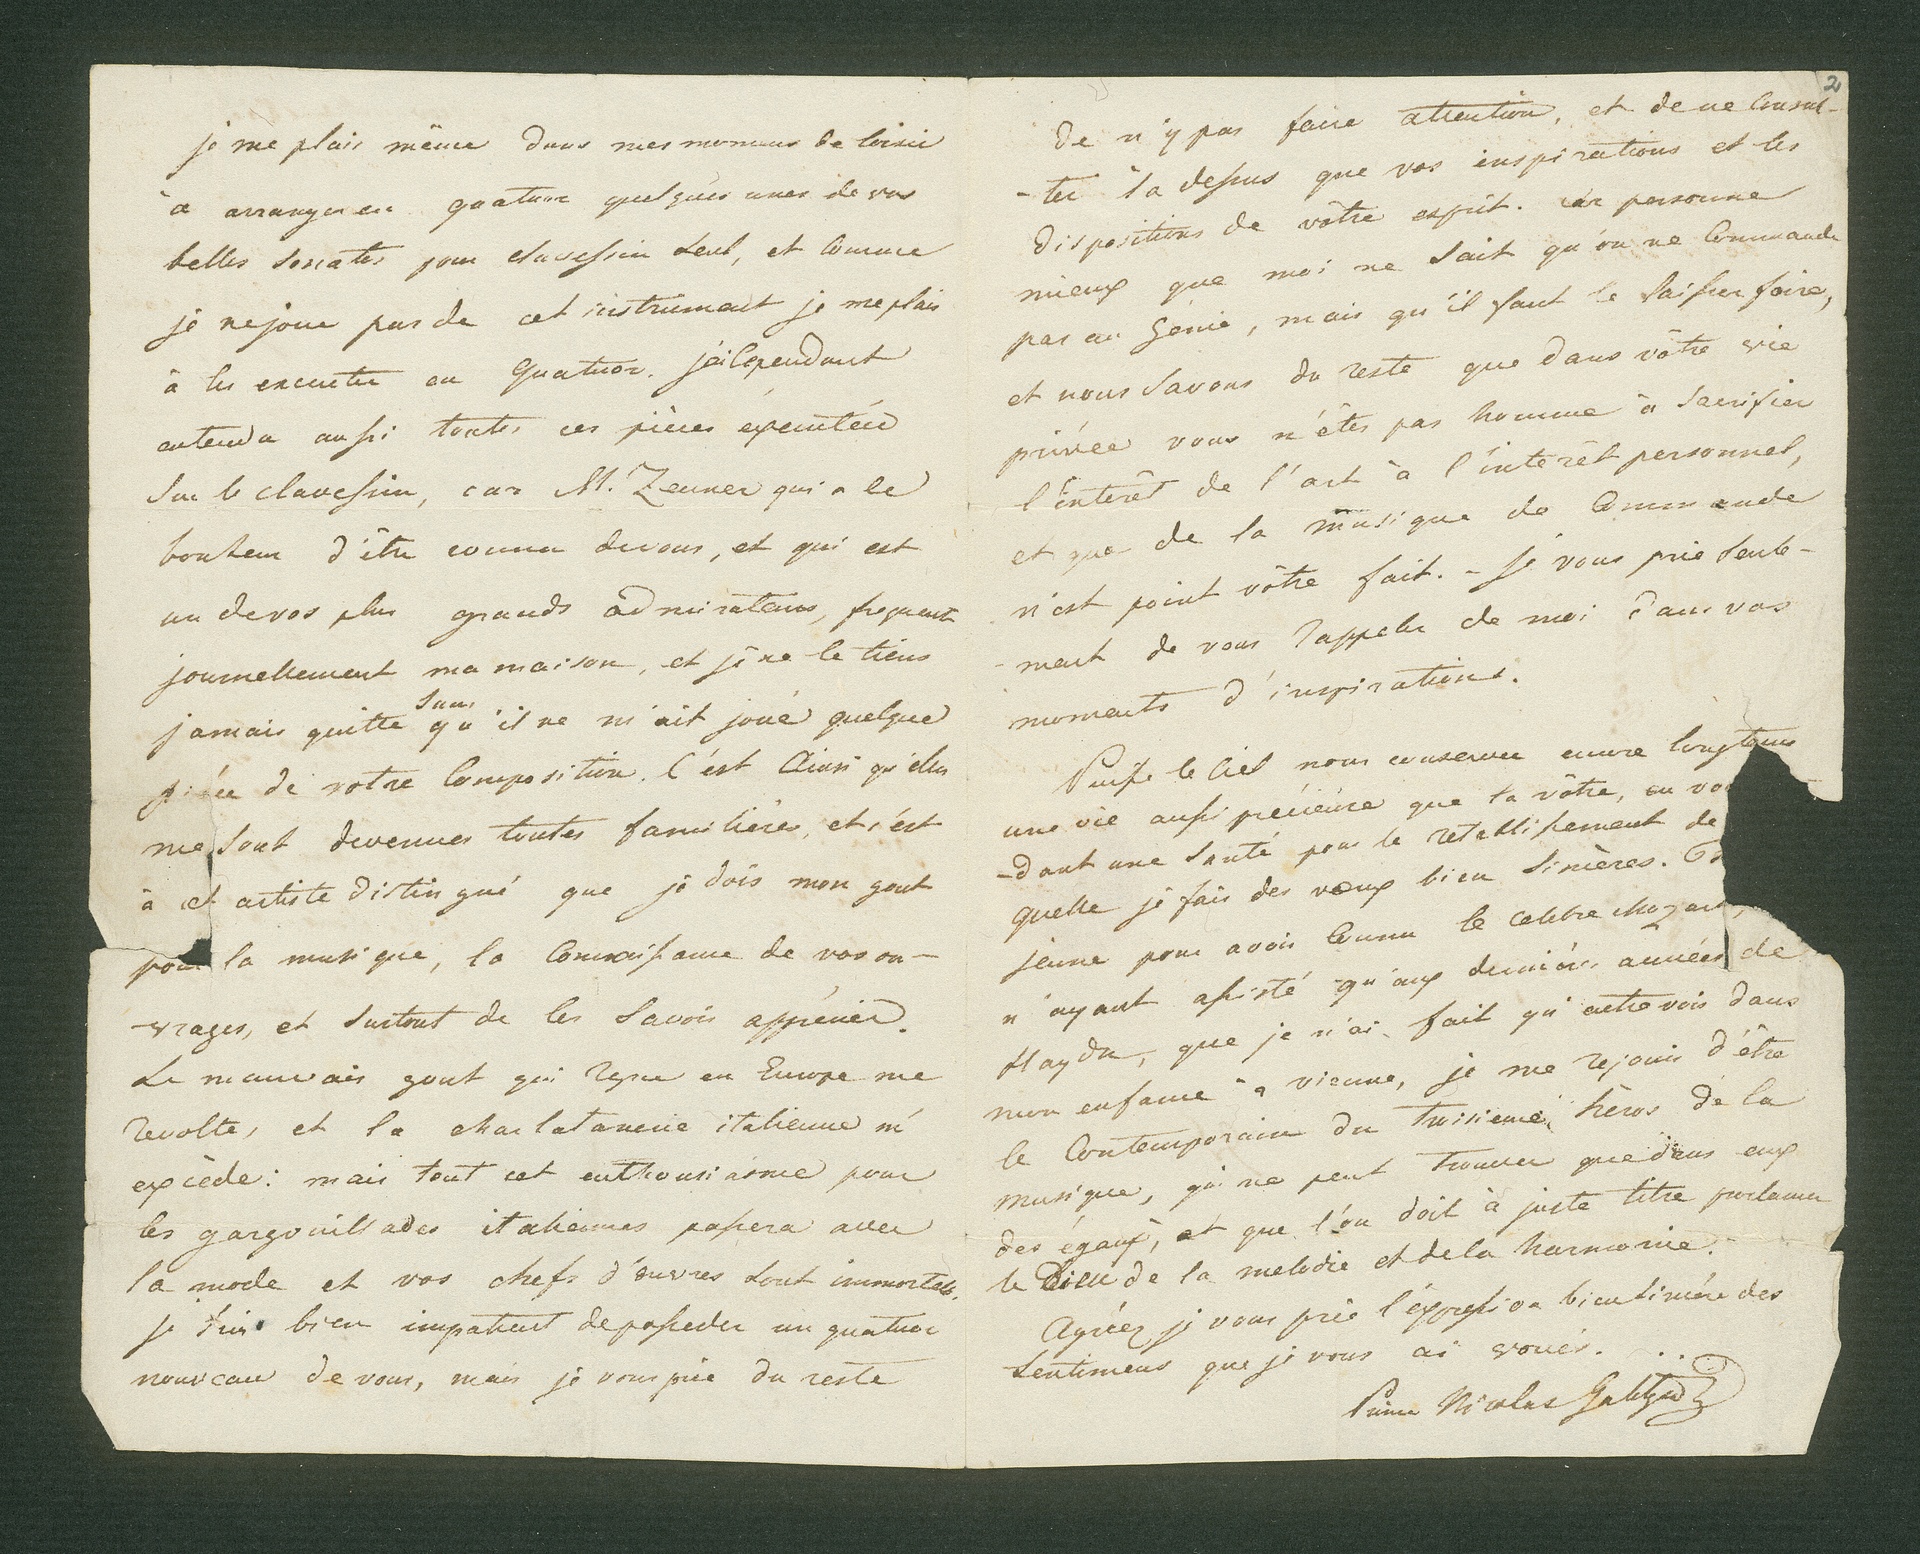 je me plais même dans mes momens de loisir
à arranger en quatuor quelques unes de vos
belles sonates pour clavessin seul, et comme
je ne joue pas de cet instrument je me plais
à les executer en Quatuor. J'ai cependant
entendu aussi toutes ces pièces éxécutées
sur le clavessin, car M. Zeuner qui a le
bonheur d'être connu de vous, et qui est
un de vos plus grands admirateurs, frequente
journellement ma maison, et je ne le tiens
jamais quitte sans qu'il ne m'ait joué quelque
pièce de votre Composition. C'est Ainsi qu'elles
me sont devenues toutes familières, et c'est
à cet artiste distingué que je dois mon gout
pour la musique, la Connaissance de vos ou-
-vrages, et surtout de les savoir apprécier.
Le mauvais gout qui regne en Europe me
revolte, et la charlatanerie italienne m'
excède: mais tout cet enthousiasme pour
les gargouillades italiennes passera avec
la mode et vos chefs d'euvres sont immortels.
je suis bien impatient de posseder un quatuor
nouveau de vous, mais je vous prie du reste
2
de n'y pas faire attention, et de ne Consul-
-ter la dessus que vos inspirations et les
dispositions de vôtre esprit. car personne
mieux que moi ne sait qu'on ne Commande
pas au Génie, mais qu'il faut le laisser faire,
et nous savons du reste que dans vôtre vie
privée vous n'êtes pas homme à sacrifier
l'interêt de l'art à l'interêt personnel,
et que de la musique de Commande
n'est point vôtre fait. - Je vous prie seule-
-ment de vous rappeler de moi dans vos
moments d'inspirations.
Puisse le Ciel nous conserver encore longtems
une vie aussi précieuse que la vôtre, en vo
-dant une santé pour le retablissement de
quelle je fais des voeux bien sincères.
jeune pour avoir Connu le celebre Mozart,
n'ayant assisté qu'aux dernières années de
Haydn, que je n'ai fait qu'entrevoir dans
mon enfance à vienne, je me rejouis d'être
le Contemporain du troisieme héros de la
musique, qui ne peut trouver que dans eux
des égaux, et que l'on doit à juste titre proclamer
le Dieu de la melodie et de la harmonie.
Agréez je vous prie l'éxpression bien sincère des
sentimens que je vous ai voués.
Prince Nicolas Galitzin